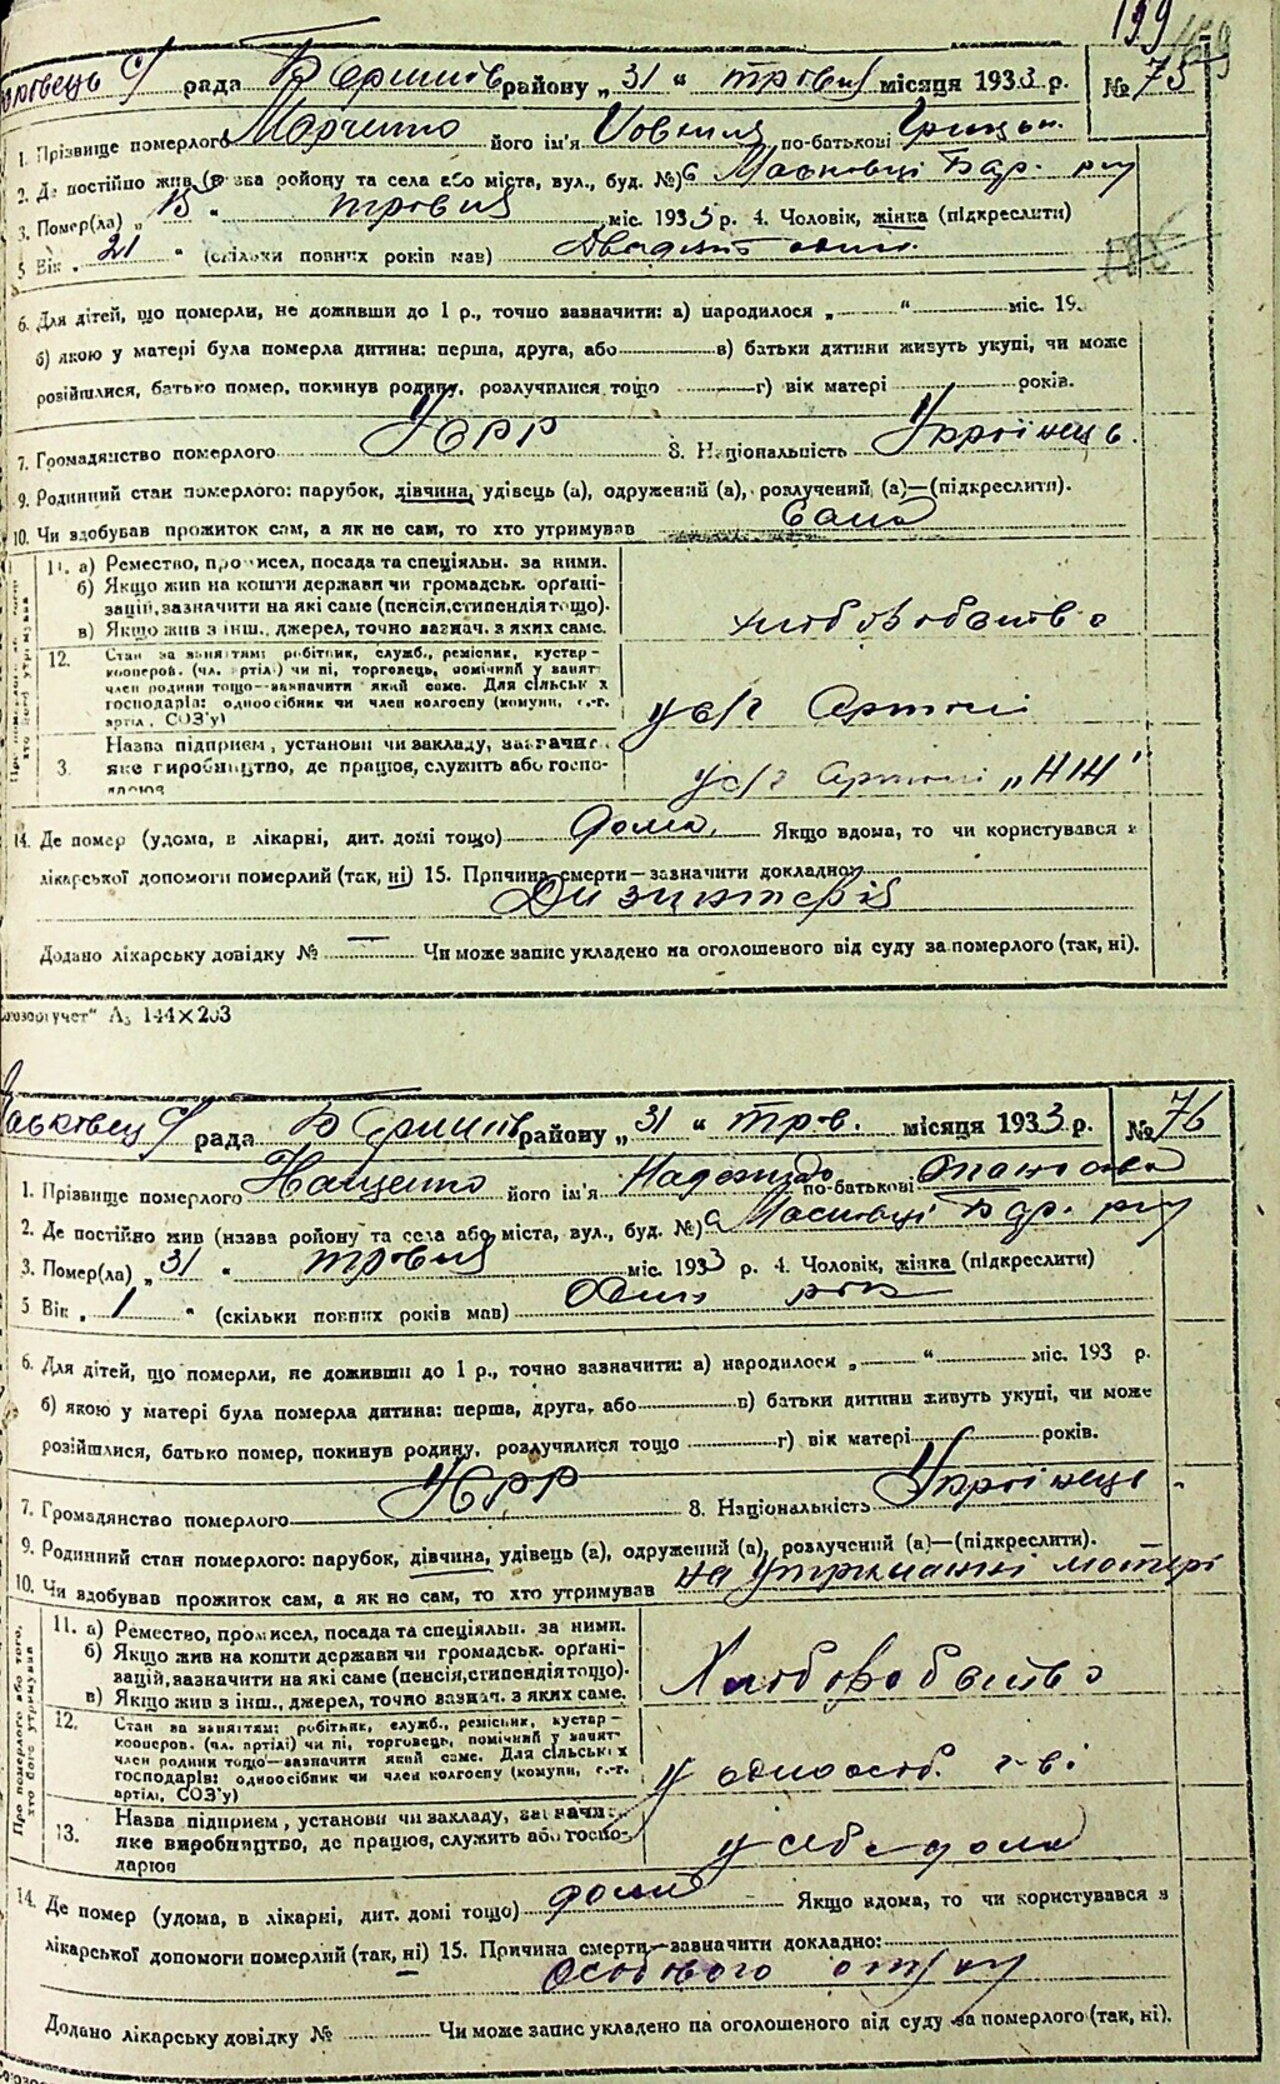 199
рада Баришів району „ 31 “ травня місяця 1933 р. № 75
1. Прізвище померлого Марченко його ім'я по-батькові Грицьк.
2. Де постійно жив (назва району та села або міста, вул., буд. №) с Масківці Бар. р-ну
3. Помер(ла) „ “ травня міс. 1933 р. 4. Чоловік, жінка (підкреслити)
5 Вік „ 21 “ (скільки повних років мав) Двадцять один.
6. Для дітей, що померли, не доживши до 1 р., точно зазначити: а) народилося „ “ міс. 19
б) якою у матері була померла дитина: перша, друга, або в) батьки дитини живуть укупі, чи може
розійшлися, батько помер, покинув родину, розлучилися тощо г) вік матері років.
7. Громадянство померлого УСРР 8. Національність Українець.
9. Родинний стан померлого: парубок, дівчина, удівець (а), одружений (а), розлучений (а)—(підкреслити).
10. Чи здобував прожиток сам, а як не сам, то хто утримував Сама
11. а) Ремество, промисел, посада та спеціяльн. за ними.
б) Якщо жив на кошти держави чи громадськ. орґані-
зацій, зазначити на які саме (пенсія, стипендія тощо).
в) Якщо жив з інш., джерел, точно зазнач. з яких саме.
хлоборобство
12. Стан за заняттям: робітник, служб., ремісник, кустар-
кооперов. (чл. артілі) чи ні, торговець, помічний у занят
член родини тощо—зазначити який саме. Для сільськ х
господарів: одноосібник чи член колгоспу (комуни, с.-г.
артіл, СОЗ'у)
у с/г Артілі
3. Назва підприєм, установи чи закладу, зазначи
яке виробництво, де працює, служить або госпо-
дарює
у с/г Артілі „НІН"
14. Де помер (удома, в лікарні, дит. домі тощо) дома, Якщо вдома, то чи користувався з
лікарської допомоги померлий (так, ні) 15. Причина смерти—зазначити докладно:
Дизинтерія
Додано лікарську довідку № — Чи може запис укладено на оголошеного від суду за померлого (так, ні).
учет“ А₅ 144×203
рада Баришів району „ 31 “ трав. місяця 1933 р. № 76
1. Прізвище померлого Нащенко його ім'я Надежда по-батькові Опанасова
2. Де постійно жив (назва району та села або міста, вул., буд. №) с Масківці Бар. р-ну
3. Помер(ла) „ 31 “ травня міс. 1933 р. 4. Чоловік, жінка (підкреслити)
5 Вік „ 1 “ (скільки повних років мав) Один рік
6. Для дітей, що померли, не доживши до 1 р., точно зазначити: а) народилося „ “ міс. 193 р.
б) якою у матері була померла дитина: перша, друга, або в) батьки дитини живуть укупі, чи може
розійшлися, батько помер, покинув родину, розлучилися тощо г) вік матері років.
7. Громадянство померлого УСРР 8. Національність Українець
9. Родинний стан померлого: парубок, дівчина, удівець (а), одружений (а), розлучений (а)—(підкреслити).
10. Чи здобував прожиток сам, а як не сам, то хто утримував на утриманні матері
Про померлого або того, хто його утримував
11. а) Ремество, промисел, посада та спеціяльн. за ними.
б) Якщо жив на кошти держави чи громадськ. орґані-
зацій, зазначити на які саме (пенсія, стипендія тощо).
в) Якщо жив з інш., джерел, точно зазнач. з яких саме.
Хлоборобство
12. Стан за заняттям: робітник, служб., ремісник, кустар—
кооперов. (чл. артілі) чи ні, торговець, помічний у занят
член родини тощо—зазначити який саме. Для сільськ х
господарів: одноосібник чи член колгоспу (комуни, с.-г.
артілі, СОЗ'у)
у одноосіб. г-ві
13. Назва підприєм, установи чи закладу, зазначи
яке виробництво, де працює, служить або госпо-
дарює
у себе дома
14. Де помер (удома, в лікарні, дит. домі тощо) дома Якщо вдома, то чи користувався з
лікарської допомоги померлий (так, ні) 15. Причина смерти—зазначити докладно:
Додано лікарську довідку № Чи може запис укладено на оголошеного від суду за померлого (так, ні).